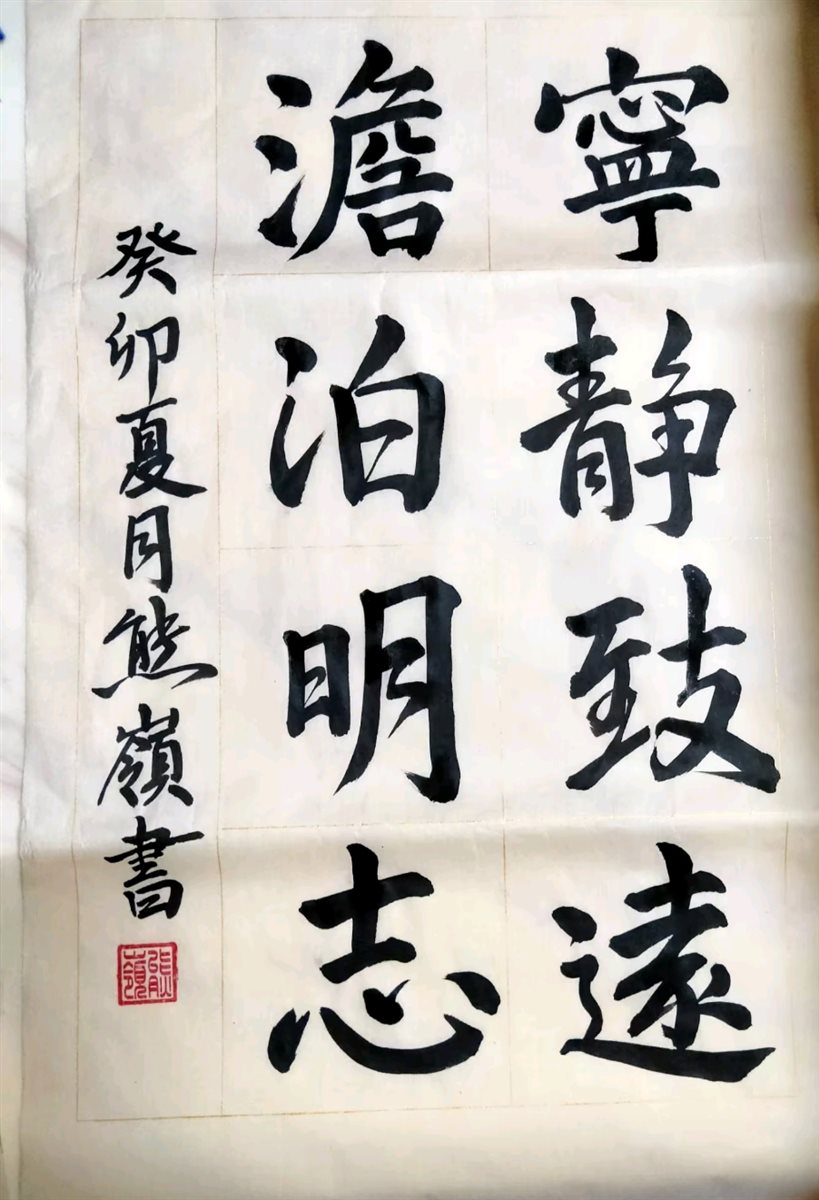 寧静致遠
澹泊明志
癸卯夏月熊嶺書
熊嶺